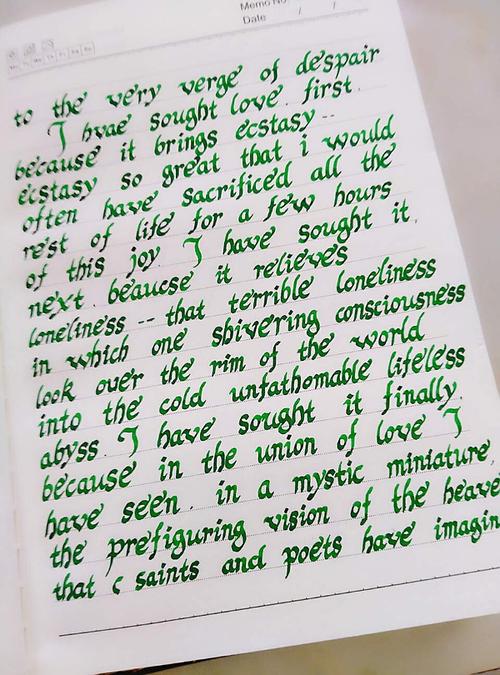 Memo No.
Date / /
to the very verge of despair
I hvae sought love. first.
because it brings ecstasy--
ecstasy so great that i would
often have sacrificed all the
rest of life for a few hours
of this joy. I have sought it,
next. beaucse it relieves
loneliness -- that terrible loneliness
in which one shivering consciousness
look over the rim of the world
into the cold unfathomable lifeless
abyss. I have sought it finally.
because in the union of love I
have seen. in a mystic miniature,
the prefiguring vision of the heave
that saints and poets have imagin